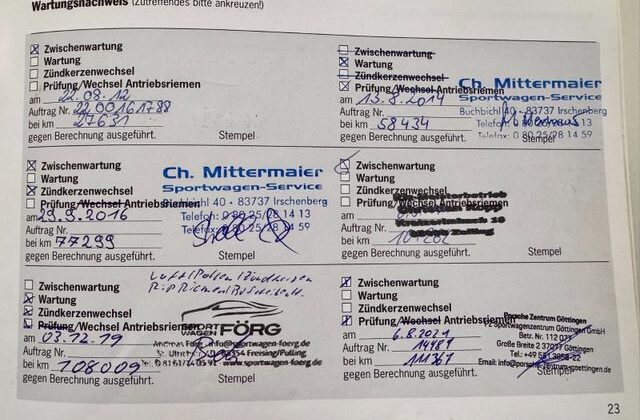 Wartungsnachweis (Zutreffendes bitte ankreuzen!)
Zwischenwartung
Wartung
Zündkerzenwechsel
Prüfung/Wechsel Antriebsriemen
am 22.08.12
Auftrag Nr. 2200161788
bei km 27631
gegen Berechnung ausgeführt. Stempel
Zwischenwartung
Wartung
Zündkerzenwechsel
Prüfung/Wechsel Antriebsriemen
am 13.8.2014
Auftrag Nr.
bei km 58434
gegen Berechnung ausgeführt. Stempel
Ch. Mittermaier
Sportwagen-Service
Buchbichl 40 · 83737 Irschenberg
Telefon: 0 80 25/28 14 13
Telefax: 0 80 25/28 14 59
Zwischenwartung
Wartung
Zündkerzenwechsel
Prüfung/Wechsel Antriebsriemen
am 29.9.2016
Auftrag Nr.
bei km 77299
gegen Berechnung ausgeführt. Stempel
Ch. Mittermaier
Sportwagen-Service
Buchbichl 40 · 83737 Irschenberg
Telefon: 0 80 25/28 14 13
Telefax: 0 80 25/28 14 59
Zwischenwartung
Wartung
Zündkerzenwechsel
Prüfung/Wechsel Antriebsriemen
am
Auftrag Nr.
bei km
gegen Berechnung ausgeführt. Stempel
Luft/Pollen/Zündkerzen
Zwischenwartung
Wartung
Zündkerzenwechsel
Prüfung/Wechsel Antriebsriemen
am 03.12.19
Auftrag Nr.
bei km 108009
gegen Berechnung ausgeführt. Stempel
SPORT
WAGEN FÖRG
info@sportwagen-foerg.de
Freising/Pulling
www.sportwagen-foerg.de
Zwischenwartung
Wartung
Zündkerzenwechsel
Prüfung/Wechsel Antriebsriemen
am 6.8.2021
Auftrag Nr. 14481
bei km 111361
gegen Berechnung ausgeführt. Stempel
Porsche Zentrum Göttingen
Sportwagenzentrum Göttingen GmbH
Betr. Nr. 112
Große Breite 2 37077 Göttingen
Tel.: +49 551
Email: info@porsche-goettingen.de
23